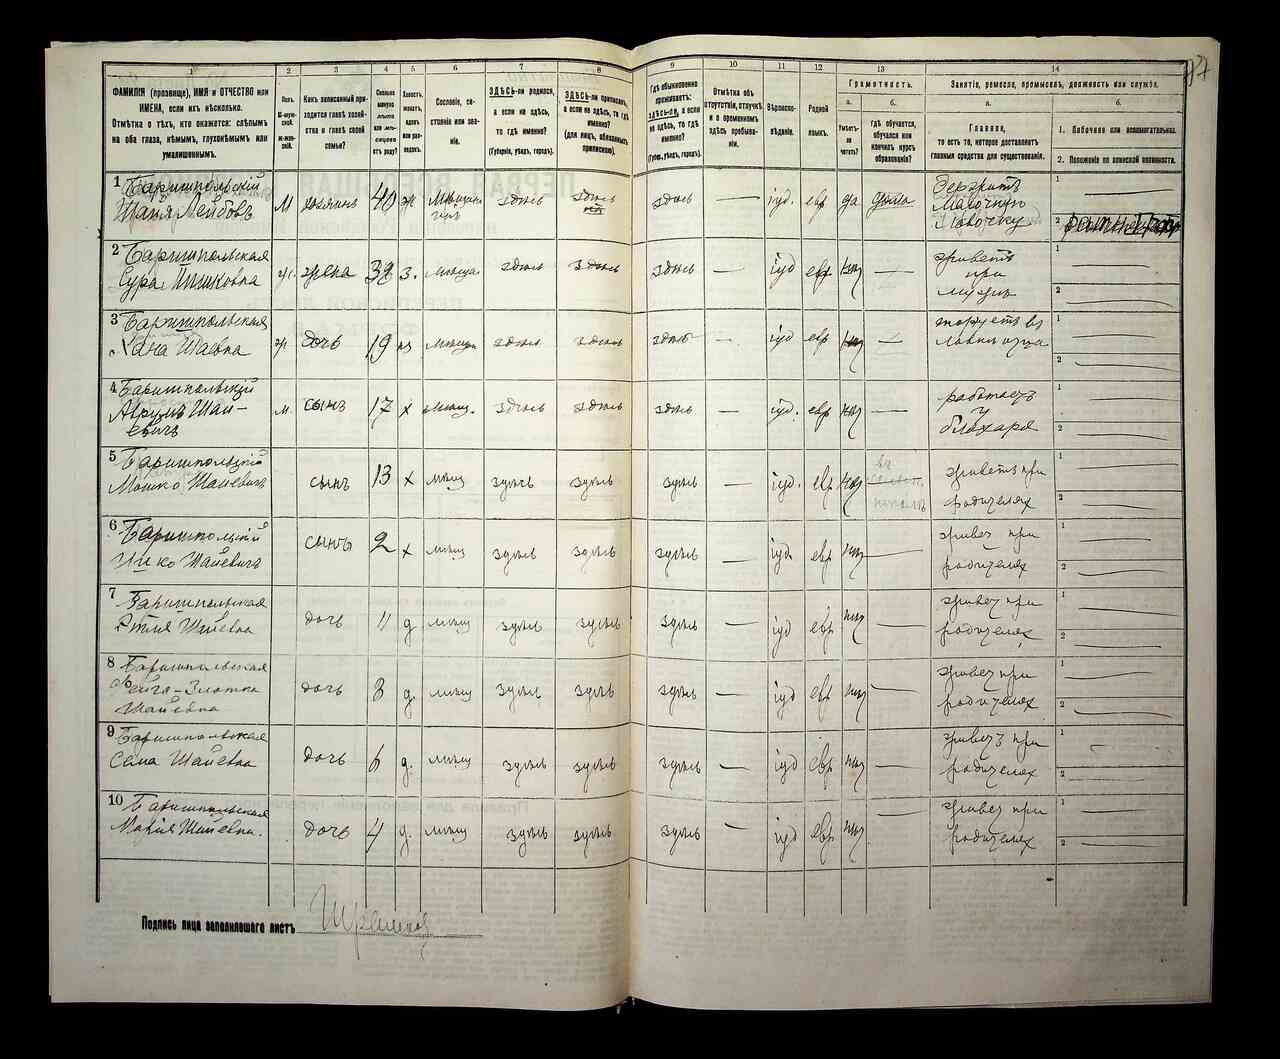 1
2
3
4
5
6
7
8
9
10
11
12
13
14
ФАМИЛІЯ (прозвище), ИМЯ и ОТЧЕСТВО или
ИМЕНА, если ихъ нѣсколько.
Отмѣтка о тѣхъ, кто окажется: слѣпымъ
на оба глаза, нѣмымъ, глухонѣмымъ или
умалишеннымъ.
Полъ.
Какъ записанный при-
ходится главѣ хозяй-
ства и главѣ своей
семьи?
Сколько
минуло
лѣтъ
или мѣ-
сяцевъ
отъ роду?
Холостъ,
женатъ,
вдовъ
или раз-
веденъ.
Сословіе, со-
стояніе или зва-
ніе.
ЗДѢСЬ-ли родился,
а если не здѣсь,
то гдѣ именно?
(Губернія, уѣздъ, городъ).
ЗДѢСЬ-ли приписанъ,
а если не здѣсь, то гдѣ
именно?
(для лицъ, обязанныхъ
припискою).
Гдѣ обыкновенно
проживаетъ:
ЗДѢСЬ-ли, а если
не здѣсь, то гдѣ
именно?
(Губерн., уѣздъ, городъ).
Отмѣтка объ
отсутствіи, отлучкѣ
и о временномъ
здѣсь пребыва-
ніи.
Вѣроиспо-
вѣданіе.
Родной
языкъ.
Грамотность.
а.
Умѣетъ-
ли
читать?
б.
Гдѣ обучается,
обучался или
кончилъ курсъ
образованія?
Занятіе, ремесло, промыселъ, должность или служба.
а.
Главное,
то есть то, которое доставляетъ
главныя средства для существованія.
б.
1. Побочное или вспомогательное.
2. Положеніе по воинской повинности.
1 Баришпольскій
Шайя Лейбовъ
М хозяинъ 40 ж здѣсь здѣсь здѣсь — іуд. евр да дома
Держитъ
Мелочную
Лавочку
2 Баришпольская
Сура Пинковна
ж. жена 3. здѣсь здѣсь здѣсь — іуд евр —
живетъ
при
мужѣ
3 Баришпольская
Хана Шаевна
дочь 19 здѣсь здѣсь здѣсь — іуд евр —
4 Баришпольскій
Шаи-
евичъ
м. сынъ 17 х мѣщ. здѣсь здѣсь здѣсь — іуд. евр —
работаетъ
у
5 Баришпольскій
Мошко Шаіевичъ
сынъ 13 х мѣщ здѣсь здѣсь здѣсь — іуд. евр
живетъ при
родителях
6 Баришпольскій
Шаіевичъ
сынъ 2 х мѣщ здѣсь здѣсь здѣсь — іуд евр —
живет при
родителях
7 Баришпольская
Шаіевна
дочь 11 д. мѣщ здѣсь здѣсь здѣсь — іуд евр —
живет при
родителях
8 Баришпольская
Фейга-Златка
Шаіевна
дочь 8 д. мѣщ здѣсь здѣсь здѣсь — іуд евр —
живет при
родителях
9 Баришпольская
Сема Шаіевна
дочь 6 д. мѣщ здѣсь здѣсь здѣсь — іуд евр —
живетъ при
родителях
10 Баришпольская
Марія Шаіевна.
дочь 4 д. мѣщ здѣсь здѣсь здѣсь — іуд евр —
живет при
родителях
Подпись лица заполнявшаго листъ